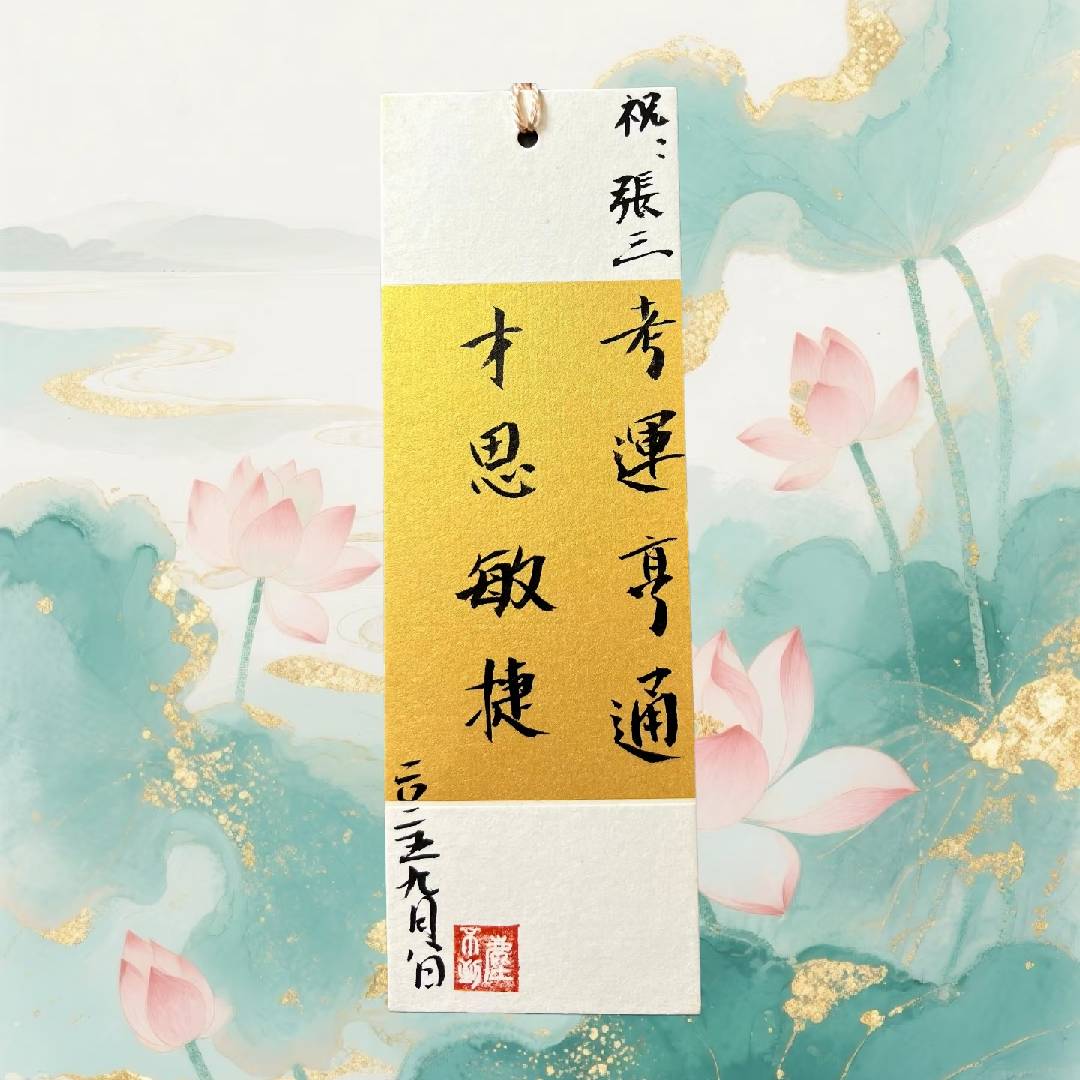 祝：張三
考運亨通
才思敏捷
二〇二五九月八日